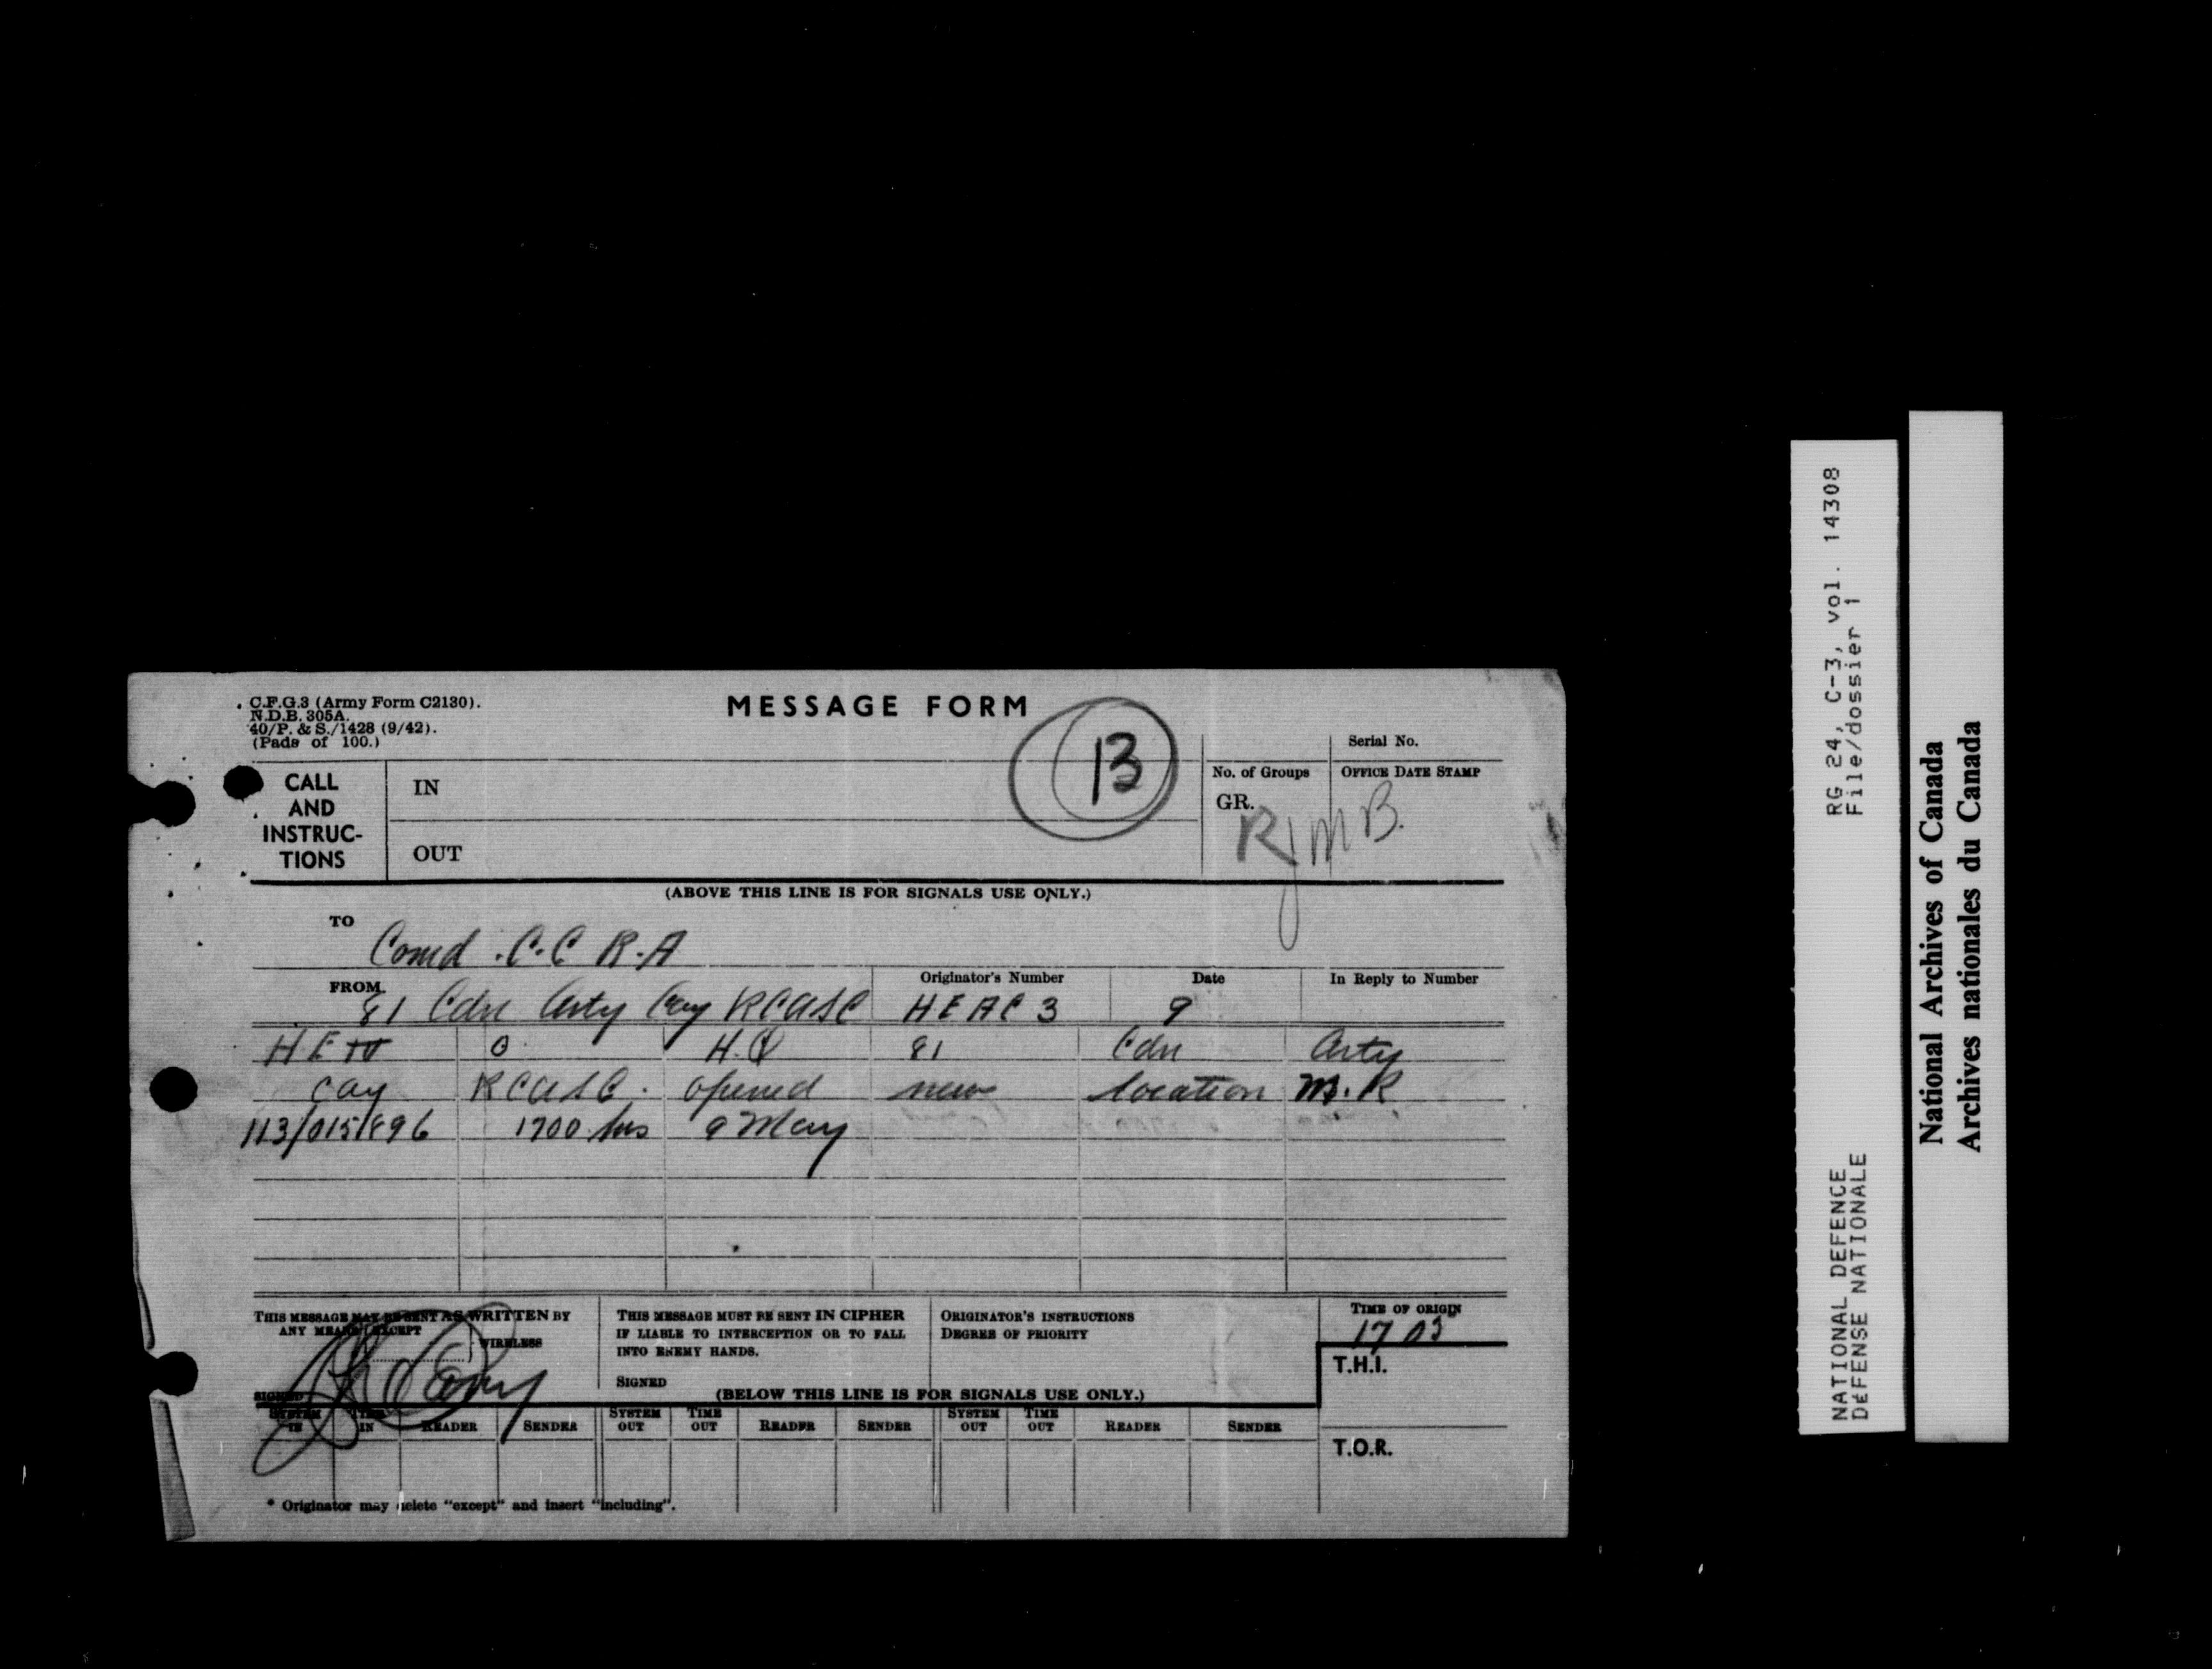 C.F.G.3 (Army Form C2130).
N.D.B. 305A.
40/P. & S./1428 (9/42).
(Pads of 100.)
MESSAGE FORM
13
Serial No.
CALL AND INSTRUC-TIONS
IN
OUT
No. of Groups
GR.
OFFICE DATE STAMP
RJMB.
(ABOVE THIS LINE IS FOR SIGNALS USE ONLY.)
TO
Comd .C.C R.A
FROM
81 Cdn Arty Coy RCASC
Originator's Number
HEAC 3
Date
9
In Reply to Number
O H.Q 81 Cdn Arty
Coy RCASC. opened new location M.R
113/015/896 1700 hrs 9 May
THIS MESSAGE MAY BE SENT AS WRITTEN BY
ANY MEANS EXCEPT
WIRELESS
SIGNED
THIS MESSAGE MUST BE SENT IN CIPHER
IF LIABLE TO INTERCEPTION OR TO FALL
INTO ENEMY HANDS.
SIGNED
ORIGINATOR'S INSTRUCTIONS
DEGREE OF PRIORITY
TIME OF ORIGIN
1705
T.H.I.
(BELOW THIS LINE IS FOR SIGNALS USE ONLY.)
SYSTEM IN TIME IN READER SENDER SYSTEM OUT TIME OUT READER SENDER SYSTEM OUT TIME OUT READER SENDER
T.O.R.
* Originator may delete "except" and insert "including".
RG 24, C-3, vol. 14308
File/dossier 1
NATIONAL DEFENCE
DÉFENSE NATIONALE
National Archives of Canada
Archives nationales du Canada